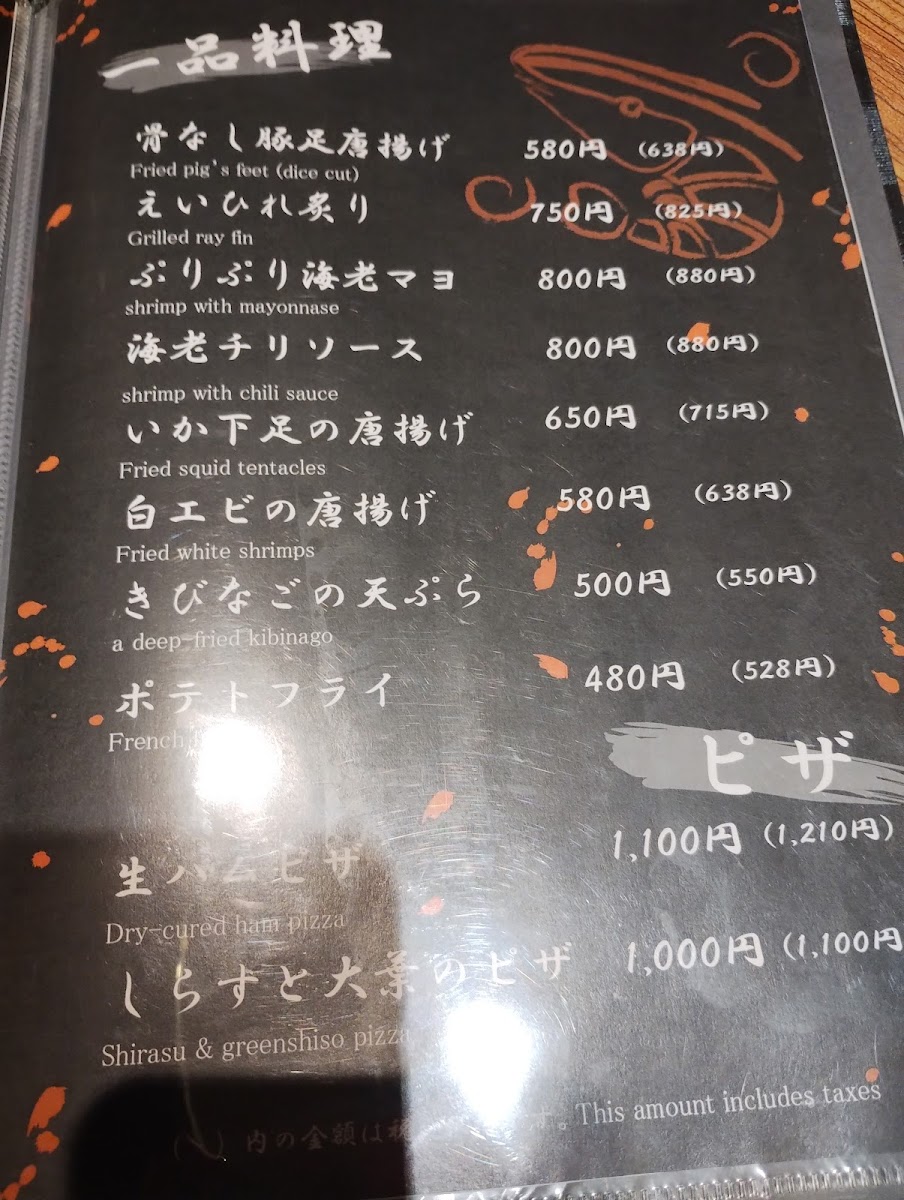 一品料理
骨なし豚足唐揚げ 580円 (638円)
Fried pig's feet (dice cut)
えいひれ炙り 750円 (825円)
Grilled ray fin
ぷりぷり海老マヨ 800円 (880円)
shrimp with mayonnase
海老チリソース 800円 (880円)
shrimp with chili sauce
いか下足の唐揚げ 650円 (715円)
Fried squid tentacles
白エビの唐揚げ 580円 (638円)
Fried white shrimps
きびなごの天ぷら 500円 (550円)
a deep-fried kibinago
ポテトフライ 480円 (528円)
French
ピザ
生ハムピザ 1,100円 (1,210円)
Dry-cured ham pizza
しらすと大葉のピザ 1,000円 (1,100円
Shirasu & greenshiso pizza
( ) 内の金額は税 す。This amount includes taxes